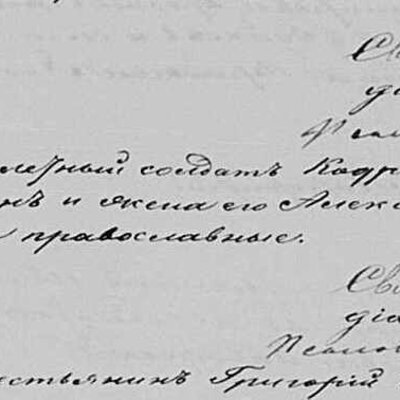 Св
ді
Псал
летный солдатъ Кодр
нъ и жена его Алекс
православные.
Св
діа
Псало
естьянинъ Григорій